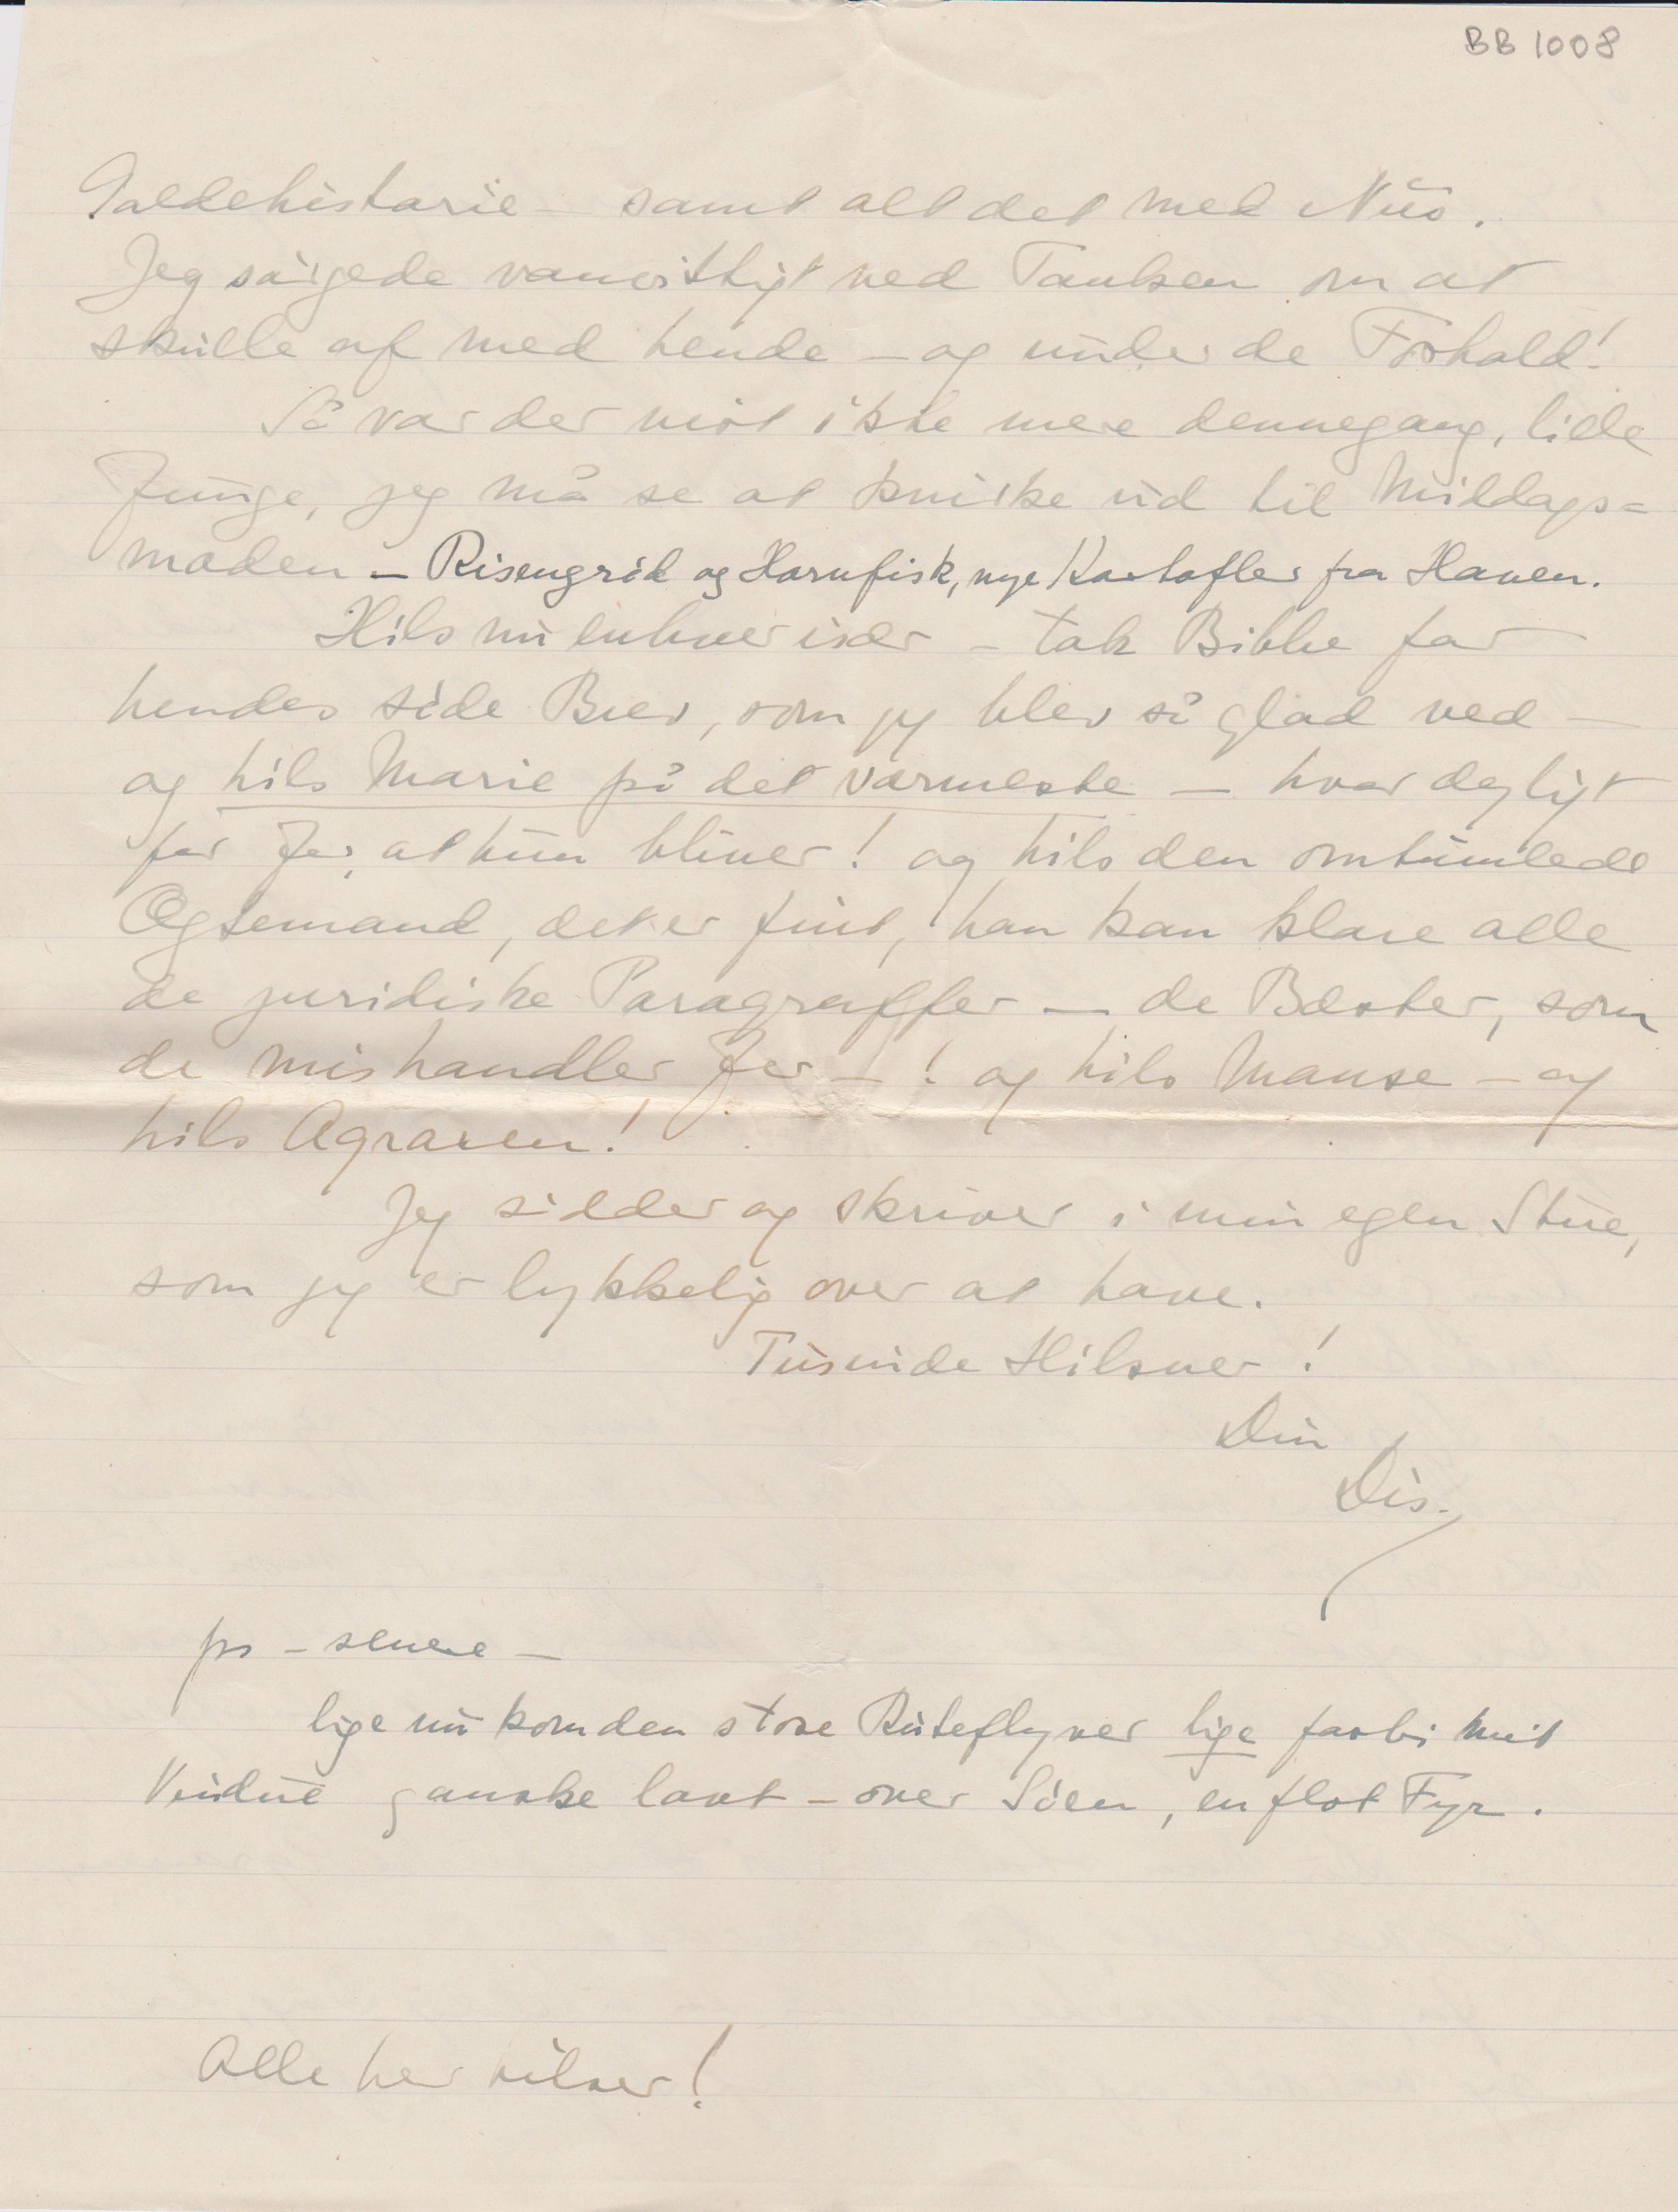 BB 1008
Galdehistorie – samt alt det med Nus.
Jeg sørgede vanvittigt ved Tanken om at
skulle af med hende – og under de Forhold!
Så var der vist ikke mere dennegang, lille
Junge, jeg må se at knirke ud til Middags=
maden – Risengrød og Hornfisk, nye Kartofler fra Haven.
Hils nu enhver især – tak Bibbe for
hendes søde Brev, som jeg blev så glad ved –
og hils Marie på det varmeste – hvor dejligt
for Jer, at hun bliver! og hils den omtumlede
Ægtemand, det er fint, han kan klare alle
de juridiske Paragraffer – de Bæster, som
de mishandler Jer – ! og hils Manse – og
hils Agraren!
Jeg sidder og skriver i min egen Stue,
som jeg er lykkelig over at have.
Tusinde Hilsner!
Din
Dis.
ps – senere –
lige nu kom den store Ruteflyver lige forbi mit
Vindue ganske lavt – over Søen, en flot Fyr.
Alle her hilser!